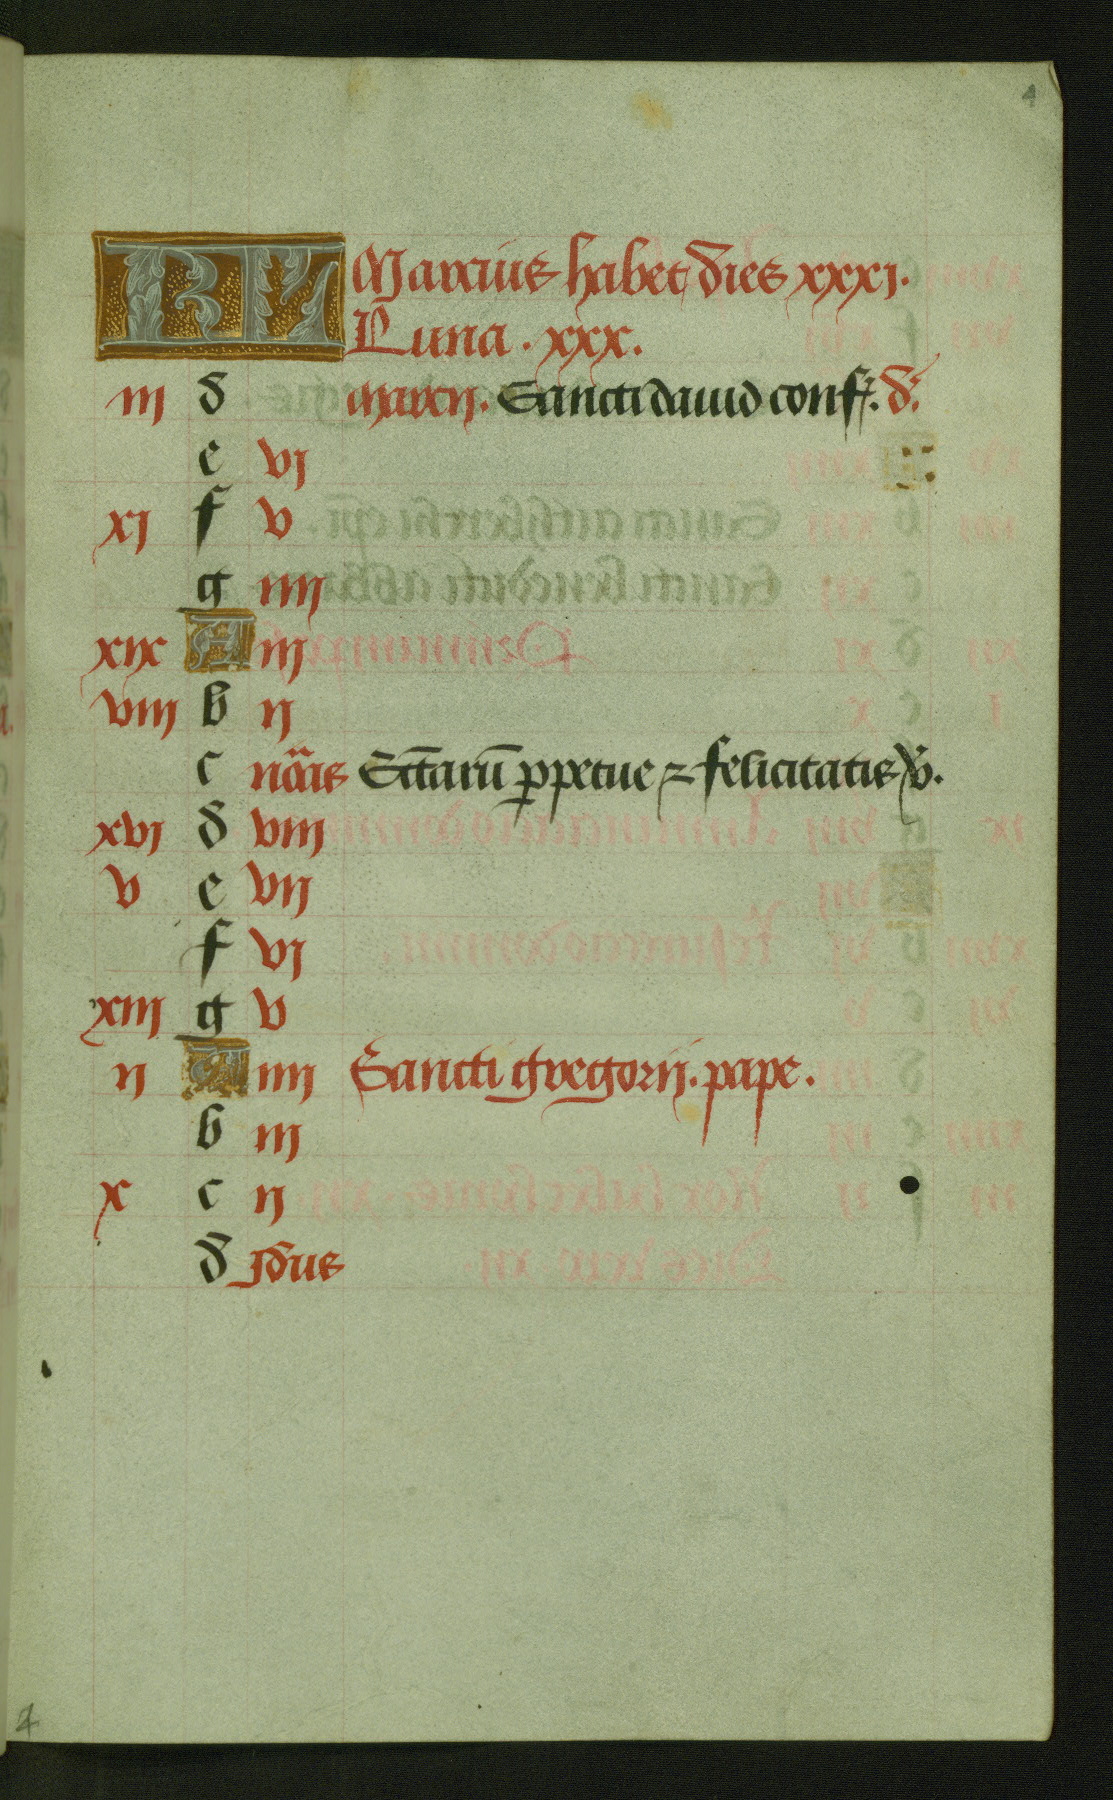 4
KL Marcius habet dies xxxi.
Luna . xxx.
iij d marcij. Sancti dauid conf. d.
e vj
xj f v
g iiij
xix A iij
viij b ij
c nōās Sctārū ppetue ⁊ felicitatis v.
xvj d viij
v e vij
f vj
xiij g v
ij A iiij Sancti gregorij. pape.
b iij
x c ij
d Jdus
4